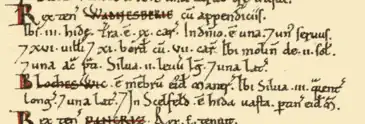 Rex ten⁊ WADNESBERIE. cū appendiciis.
Ibi. III. hidę. Tra. ē. IX. car̄. In dn̄io. ē una. ⁊ un⁹ seruus.
⁊ XVI. uill̄i ⁊ XI. bord̄. cū. VII. car̄. Ibi molin̄ de. II. sol̄.
⁊ una ac̄ p̄ti. Silua. II. leuu l̄g̃. ⁊ una lat̄.
BLOCHESWIC. ē m̄brū eid̄ maner̄. Ibi Silua. III. quent̄
long̃. ⁊ una lat̄. ⁊ In Scelfeld. ē hida uasta. ptin̄ eid̄ m̄.
Rex ten⁊